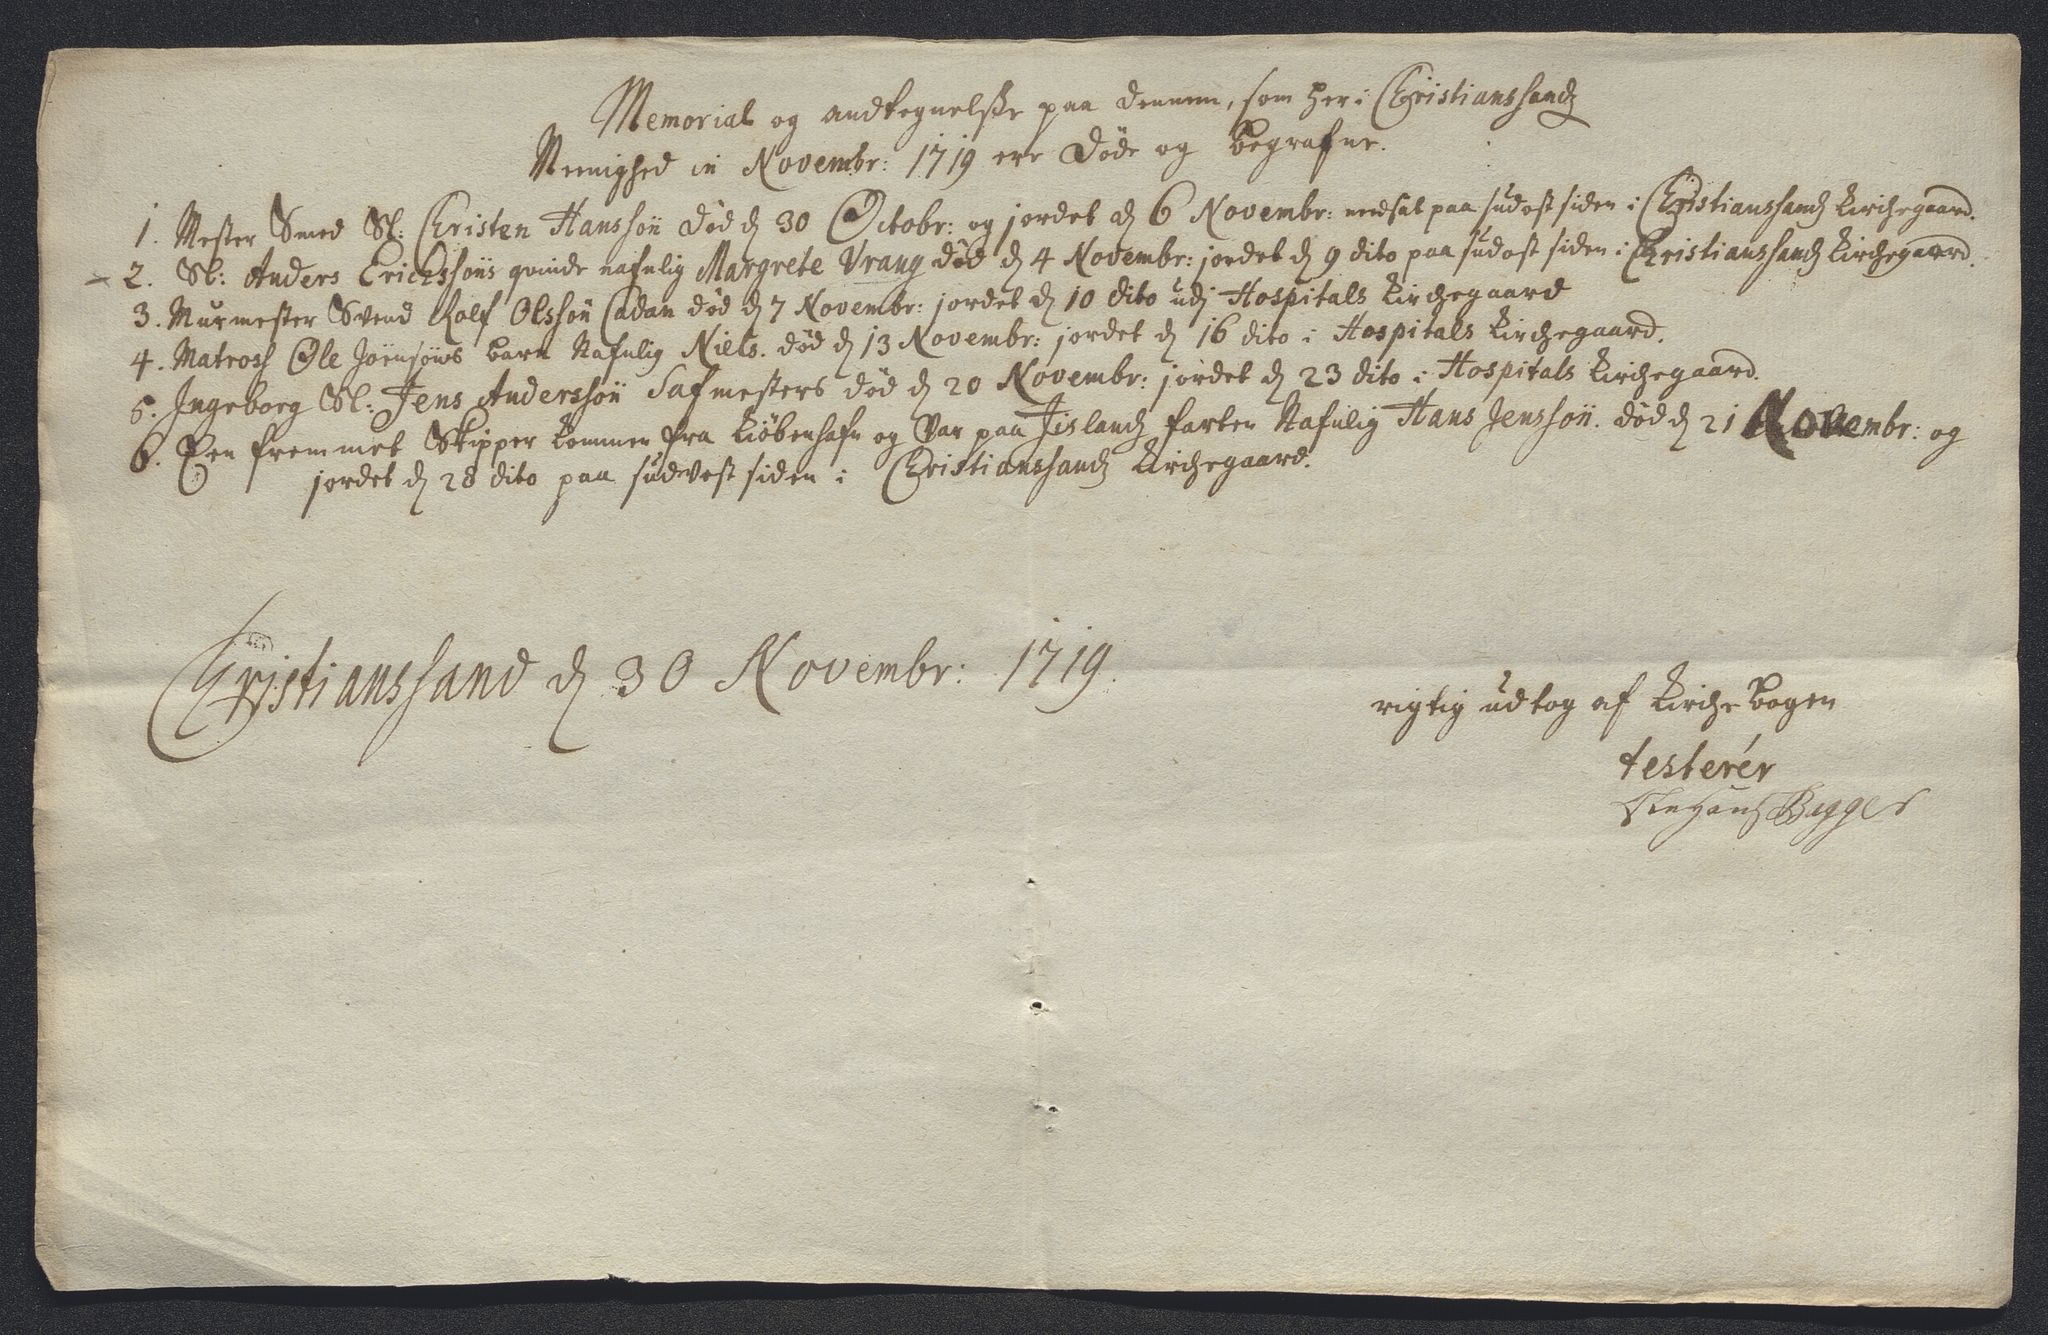 Memorial og andtegnelsße paa dennem, som her i Christianssandz
Meenighed in Novembr: 1719 ere døde og begrafne.
1. Mester Smed Sl: Christen Hanssøn død d 30 Octobr: og jordet d 6 Novembr: nedsat paa sudost siden i Christianssandz Kirchegaard.
2. Sl: Anders Erickssøns qvinde nafnlig Margrete Vrang død d 4 Novembr: jordet d 9 dito paa sudost siden i Christianssandz Kirchegaard.
3. Murmester Svend Rolf Olssøn død d 7 Novembr: jordet d 10 dito udj Hospitals Kirchegaard
4. Matross Ole Jørensøns barn Nafnlig Niels. død d 13 Novembr: jordet d 16 dito i Hospitals Kirchegaard.
5. Ingeborg Sl: Jens Anderssøn død d 20 Novembr: jordet d 23 dito i Hospitals Kirchegaard.
6. Een fremmet Skipper kommen fra Kiøbenhafn og var paa Jislandz farten Nafnlig Hans Jenssøn. død d 21 Novembr: og
jordet d 28 dito paa sudvest siden i Christianssandz Kirchegaard.
Christianssand d 30 Novembr: 1719.
rigtig udtog af Kirche bogen
testerer
Bagger